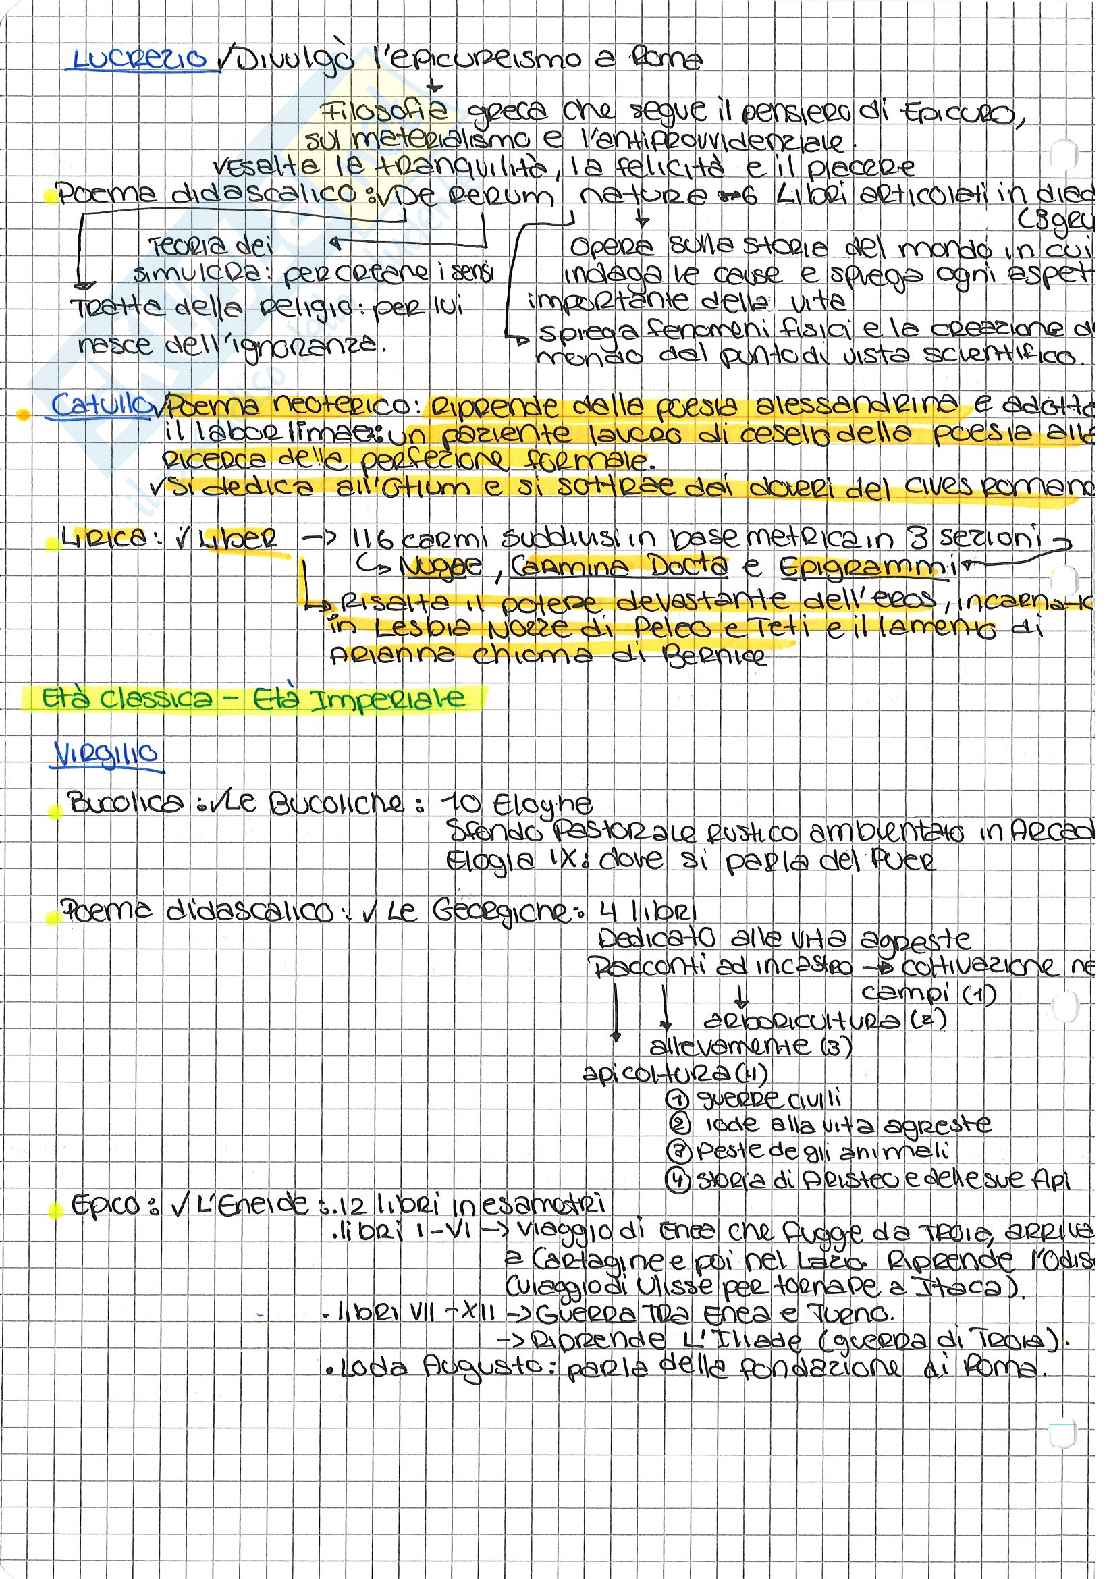 LUCREZIO √Divulgò l'epicureismo a Roma
Filosofia greca che segue il pensiero di Epicuro,
sul materialismo e l'antiprovvidenziale.
resalta la tranquilità, la felicità e il piacere
Poema didascalico: √De rerum natura → 6 Libri articolati in diad
(3gru
Teoria dei
simulcra: percetane i sensi
Tratta della religio: per lui
nasce dell'ignoranza.
Opera sulla storia del mondo in cui
indaga le cause e spiega ogni aspet
importante della vita
spiega fenomeni fisici e la creazione d
mondo dal punto di vista scientifico.
Catullo √Poema neoterico: Riprende dalla poesia alessandrina e adotta
il labor limae: un paziente lavoro di cesello della poesia alla
ricerca della perfezione formale.
√Si dedica all'otium e si sottrae dai doveri del cives romano
Lirica: √Liber → 116 carmi suddivisi in base metrica in 3 sezioni
↳ Nugae, Carmina Docta e Epigrammi
↳ Risalta il potere devastante dell'eros, incarnato
in Lesbia Nozze di Peleo e Teti e il lamento di
Arianna chioma di Bernice
Età Classica - Età Imperiale
Virgilio
Bucolica: √Le Bucoliche: 10 Eloghe
Sfondo Pastorale rustico ambientato in Arcad
Elogia IX: dove si parla del Puer
Poema didascalico: √Le Georgiche: 4 libri
Dedicato alla vita agreste
Racconti ad incastro → coltivazione ne
campi (1)
arboricultura (2)
allevamente (3)
apicoltura (4)
① guerre civili
② lode alla vita agreste
③ Peste degli animali
④ storia di Aristeo e delle sue Api
Epico: √L'Eneide: .12 libri in esametri
.libri I-VI → viaggio di Enea che fugge da Troia, arriva
a Cartagine e poi nel Lazio. Riprende l'Odis
(viaggio di Ulisse per tornare a Itaca).
.libri VII-XII → Guerra tra Enea e Turno.
→ Riprende L'Iliade (guerra di Troia).
.Loda Augusto: parla della fondazione di Roma.